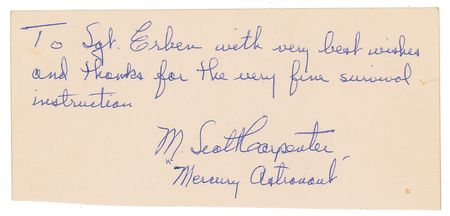 To Sgt. Erben with very best wishes
and thanks for the very fine survival
instruction
M. Scott Carpenter
"Mercury Astronaut"